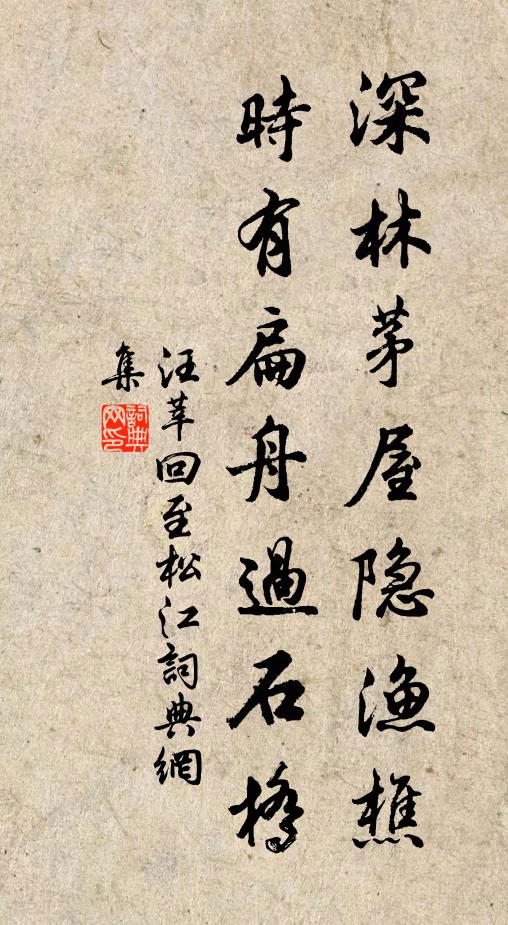 深林茅屋隐漁樵
時有扁舟過石橋
汪莘回至松江詞典網
集
詞典
网印